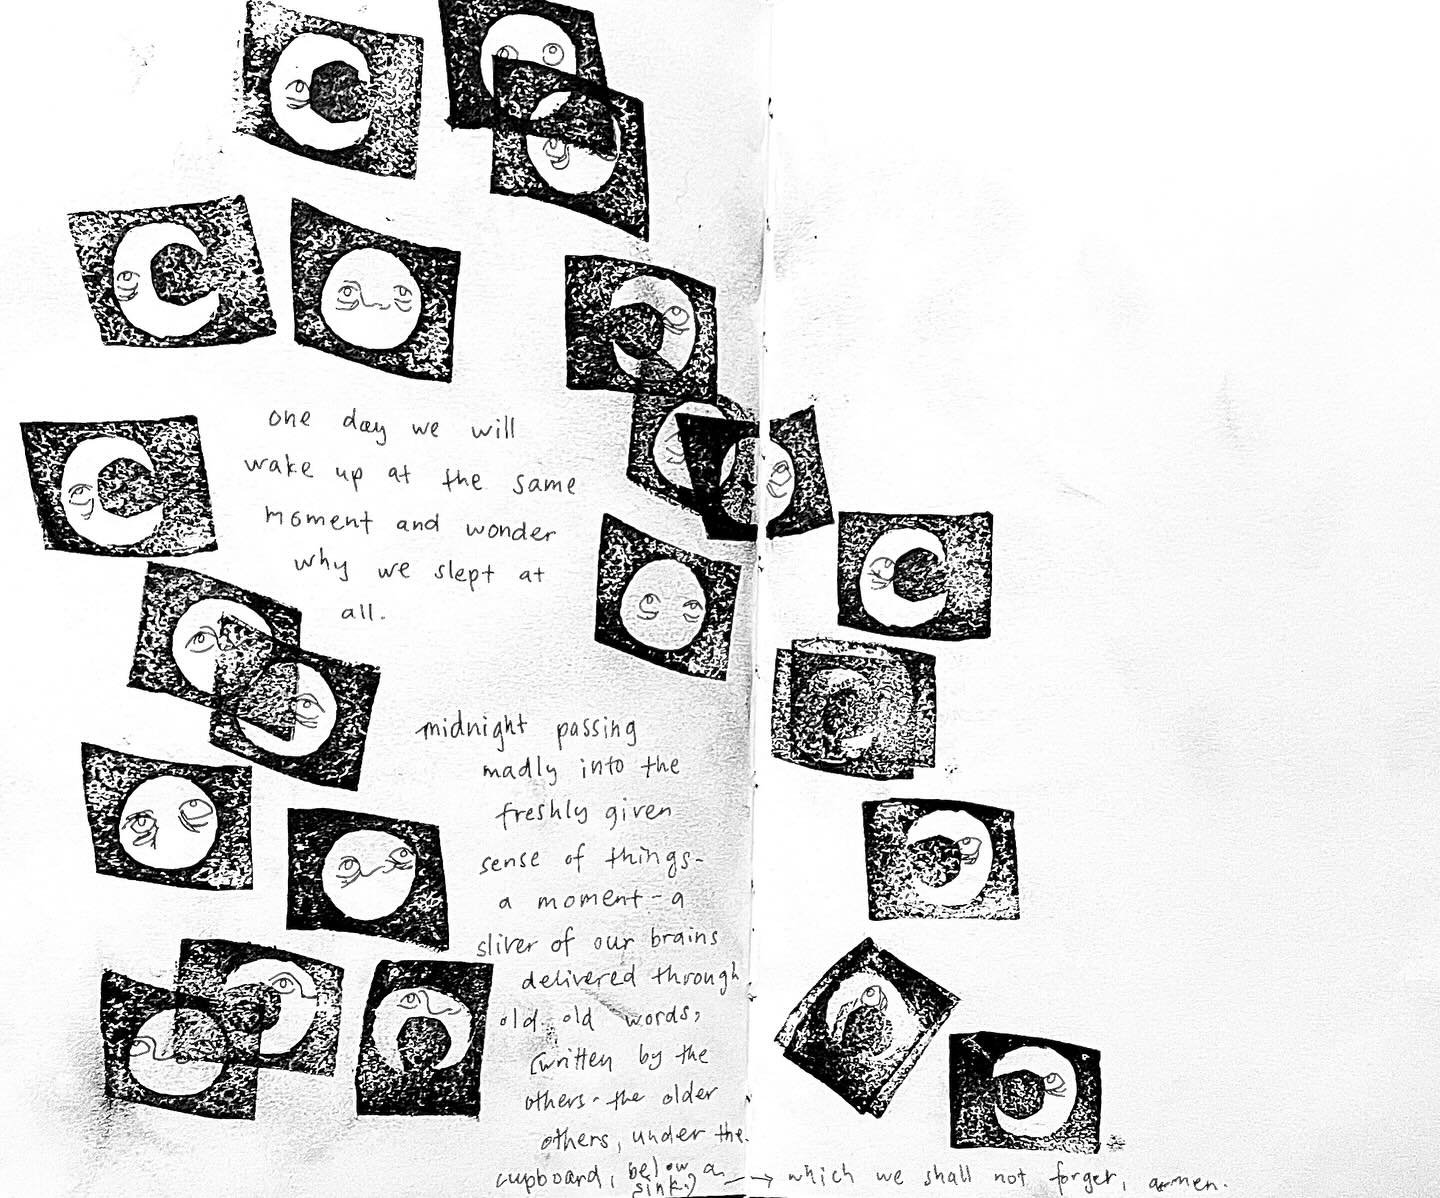 one day we will
wake up at the same
moment and wonder
why we slept at
all.
midnight passing
madly into the
freshly given
sense of things-
a moment - a
sliver of our brains
delivered through
old old words,
(written by the
others - the older
others, under the
cupboard, below a
sink.) → which we shall not forget, amen.